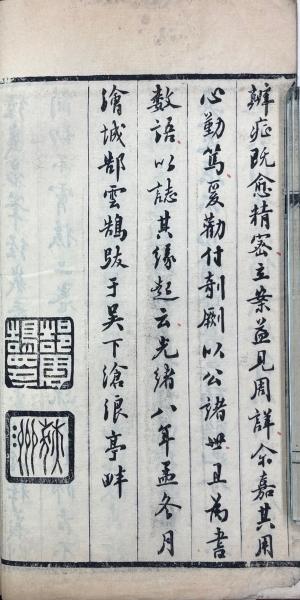 辨症既愈精密立案益見周詳余嘉其用
心勤篤爰勸付剞劂以公諸世且為書
數語以誌其緣起云光緒八年孟冬月
繪城鄒雲鵠跋于吳下滄浪亭畔